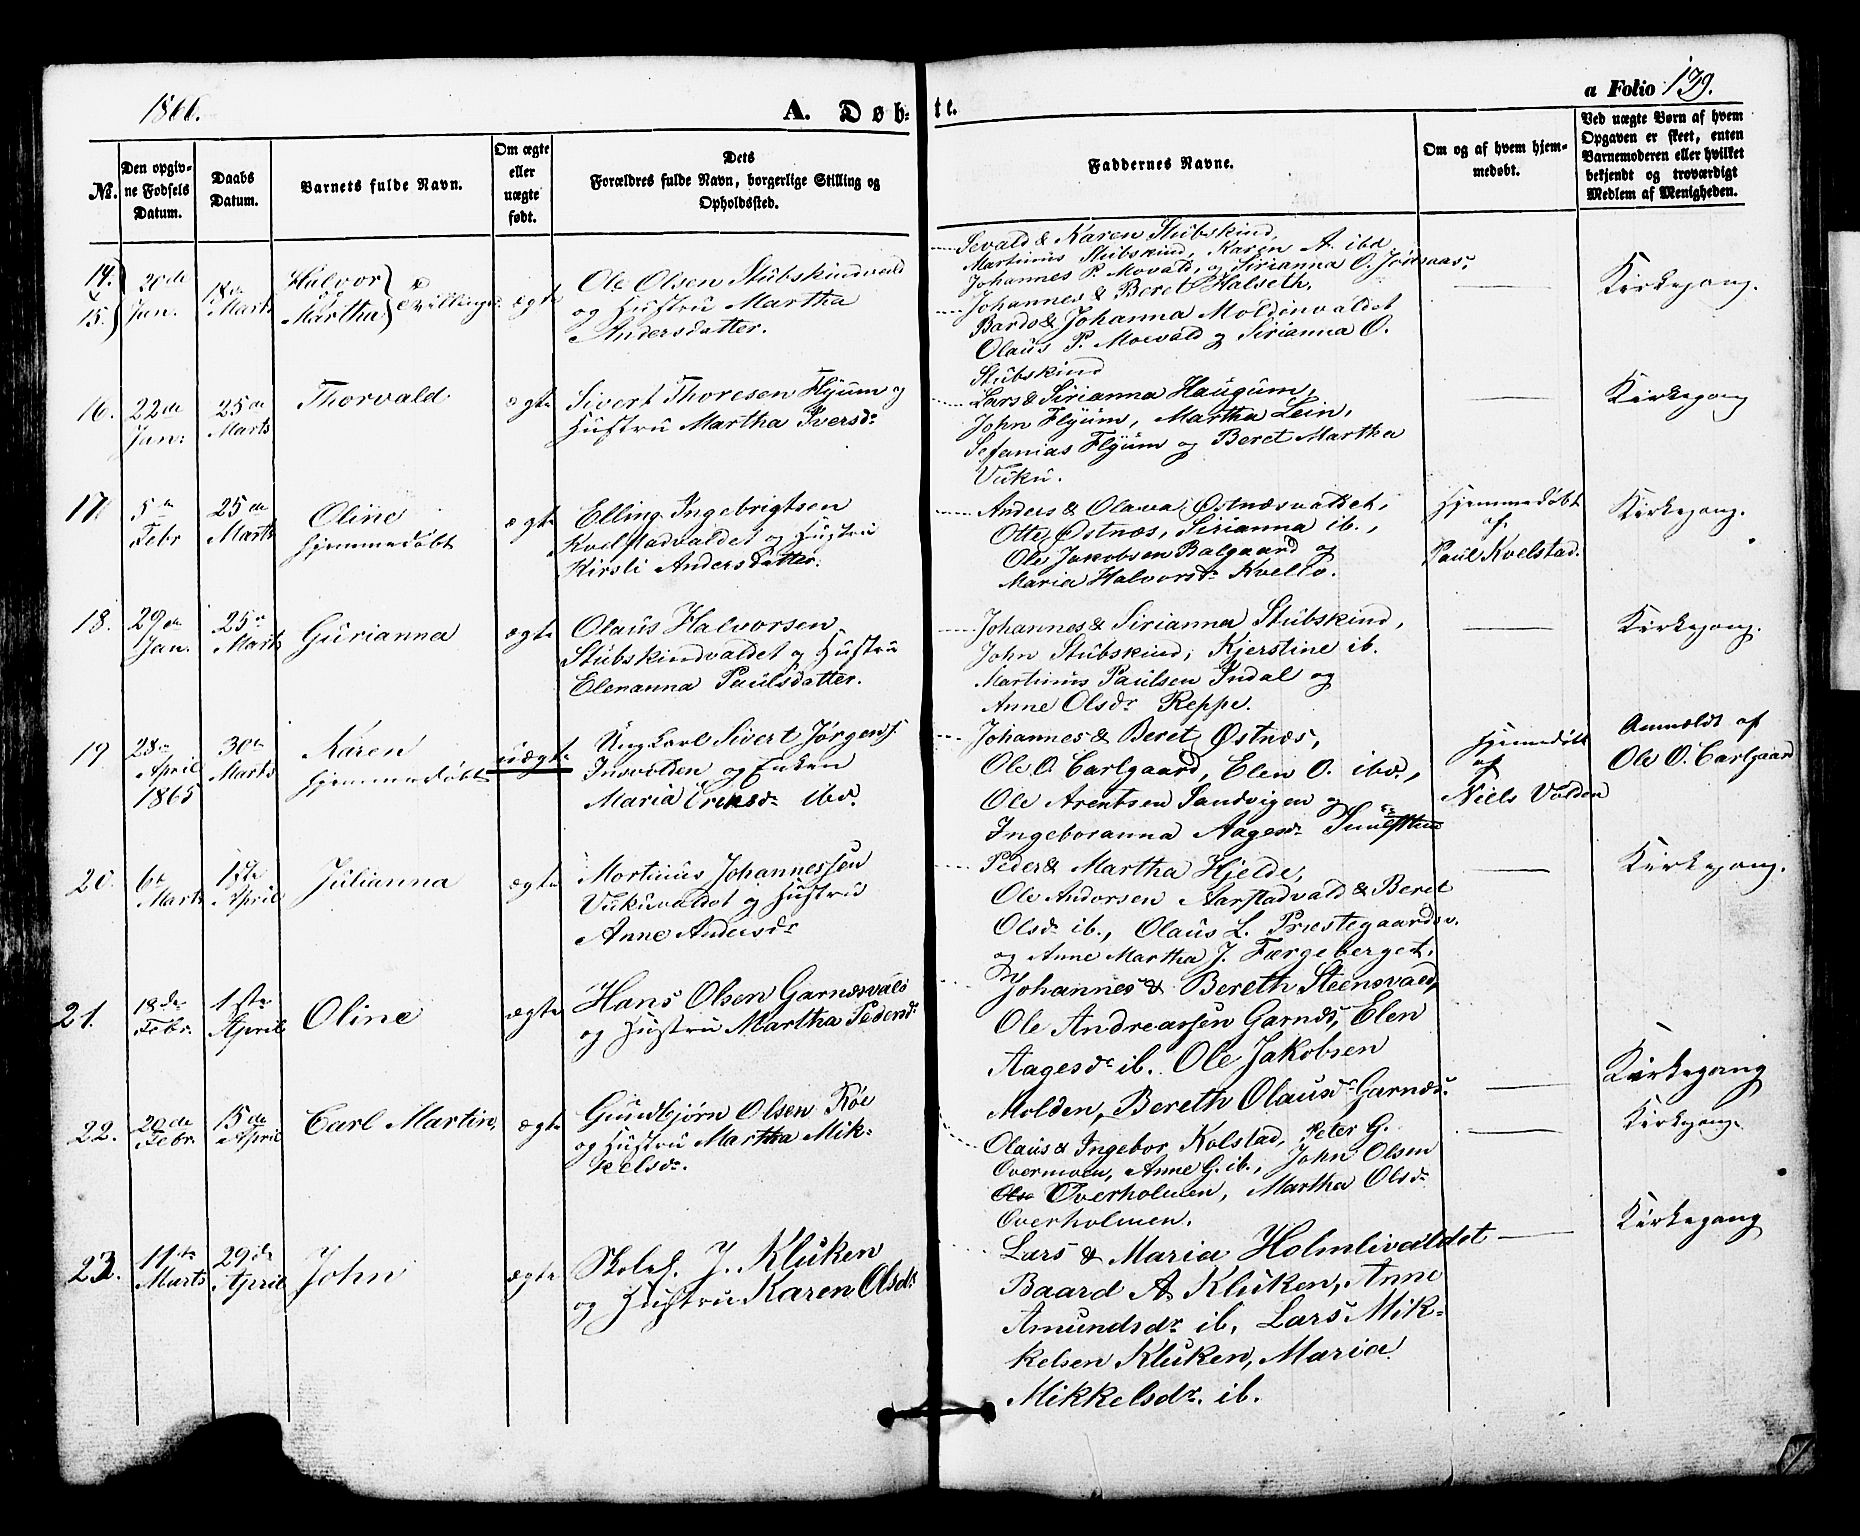 1866.
A. Døb-
te.
a Folio 139.
No.
Den opgiv-
ne Fødsels
Datum.
Daabs
Datum.
Barnets fulde Navn.
Om ægte
eller
uægte
født.
Dets
Forældres fulde Navn, borgerlige Stilling og
Opholdssted.
Faddernes Navne.
Om og af hvem hjem-
medøbt.
Ved uægte Børn af hvem
Opgaven er skeet, enten
Barnemoderen eller hvilket
bekjendt og troværdigt
Medlem af Menigheden.
14.
15.
Jan.
18de
Marts
Halvor
Martha
Tvillinger
ægte
Ole Olsen Stubskindvald
og Hustru Martha
Andersdatter.
Sevald & Karen Stubskind,
Martinus Stubskind, Karen A. ibd
Johannes P. Movald, og Sirianna O.
Johannes & Beret Halseth,
Bards & Johanna Moldenvaldet
Olaus P. Moevald og Sirianna O.
Stubskind
Kirkegang.
16.
22de
Jan:
25de
Marts
Thorvald
ægte
Sivert Thoresen Flyum og
Hustru Martha Iversdr
Lars & Sirianna Haugum,
John Flyum, Martha Lein,
Sefanias Flyum og Beret Martha
Vuku.
Kirkegang
17.
5te
Febr
25de
Marts
Oline
hjemmedøbt
ægte
Elling Ingebrigtsen
Kvelstadvaldet og Hustru
Kirsti Andersdatter.
Anders & Olava Østnæsvaldet,
Otte Østnæs, Sirianna ib.,
Ole Jakobsen Balgaard og
Maria Halvorsdr Kvello.
Hjemmedøbt
af
Paul Kvelstad.
Kirkegang.
18.
29de
Jan.
25de
Marts
Gurianna
ægte
Olaus Halvorsen
Stubskindvaldet og Hustru
Elenanna Paulsdatter.
Johannes & Sirianna Stubskind,
John Stubskind, Kjerstine ib.
Martinus Paulsen Indal og
Anne Olsdr Reppe.
Kirkegang.
19
28de
April
1865
30te
Marts
Karen
hjemmedøbt
uægte
Ungkarl Sivert Jørgens.
Insvolden og Enken
Maria Eriksdr ibd.
Johannes & Beret Østnæs,
Ole O. Carlgaard, Elen O. ibd.,
Ole Arentsen Sandvigen og
Ingeboranna Aagesdr
hjemmedøbt
af
Niels Volden
Anmeldt af
Ole O. Carlgaard
20.
6te
Marts
1ste
April
Julianna
ægte
Mortinus Johannessen
Vukuvaldet og Hustru
Anne Andersdr
Peder & Martha Hjelde,
Ole Andersen Aarstadvald & Beret
Olsdr ib., Olaus L. Præstegaardsv.
og Anne Martha J. Færgeberget.
Kirkegang.
21.
18de
Febr.
1ste
April
Oline
ægte
Hans Olsen Garnæsvald
og Hustru Martha Pedersdr
Johannes & Bereth Steensvald,
Ole Andreassen Garnæs, Elen
Aagesdr ib. Ole Jakobsen
Molden, Bereth Olausdr Garnæs.
Kirkegang
22.
20de
Febr.
15de
April
Carl Martin,
ægte
Gundbjørn Olsen Røe
og Hustru Martha Mik-
kelsdr.
Olaus & Ingebor Kolstad, Peter G.
Overmoen, Anne G. ib., John Olsen
Overholmen, Martha Olsdr
Overholmen.
Kirkegang.
23.
11te
Marts
29de
April
John
ægte
Skolel. J. Kluken
og Hustru Karen Olsdr
Lars & Maria Holmlivaldet
Baard A. Kluken, Anne
Amundsdr ib, Lars Mik-
kelsen Kluken, Maria
Mikkelsdr. ib.
Kirkegang